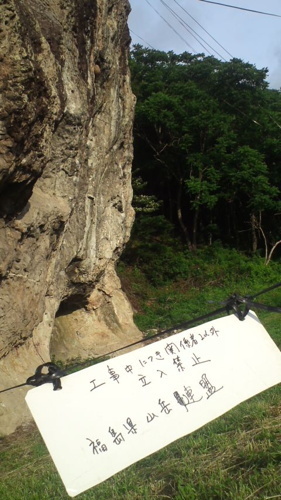 工事中につき関係者以外
立入禁止
福島県山岳連盟